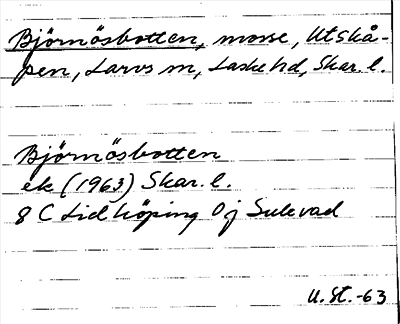 Björnösbotten, mosse, Utskå-
pen, Larvs sn, Laske hd, Skar. l.
Björnösbotten
ek (1963) Skar. l.
8 C Lidköping 0 j Sulevad
U. St. -63